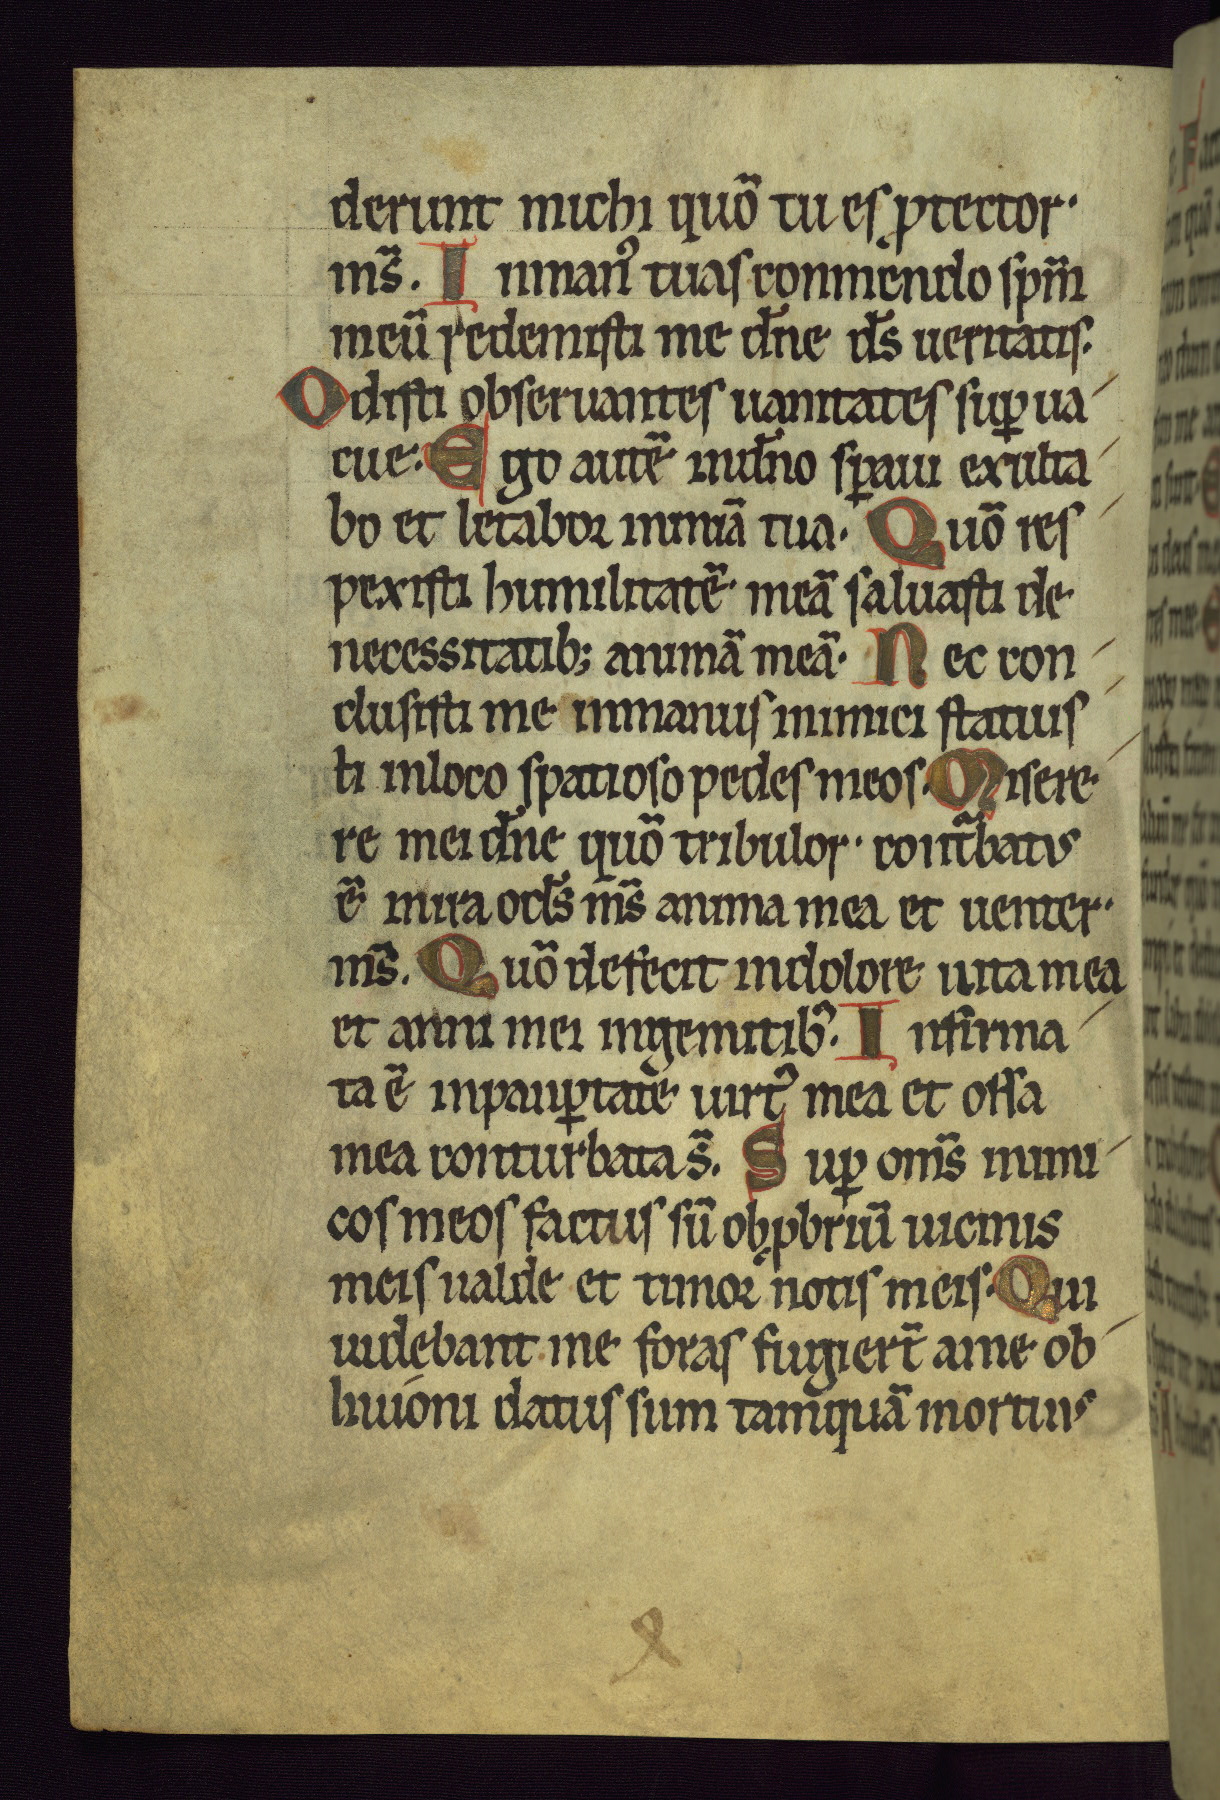 derunt michi quō tu es ꝓtector·
ms̄. I nman⁹ tuas conmendo spm̄
meū redemisti me dn̄e ds̄ ueritatis·
Odisti obseruantes uanitates suꝑua
cue· E go autē indn̄o sꝑaui exulta
bo et letabor inmiā tua· Quō res
pexisti humilitatē meā saluasti de
necessitatib; animā meā· N ec con
clusisti me inmanus inimici statuis
ti inloco spatioso pedes meos· Misere
re mei dn̄e quō tribulor· cont̄batus
ē inira ocl̄s m̄s anima mea et uenter·
ms̄. Quō defecit indolore uita mea
et anni mei ingemitib⁹· I nfirma
ta ē inpauꝑtate uirt⁹ mea et ossa
mea conturbata s̄. S uꝑ oms̄ inimi
cos meos factus sū obꝓbriū uicinis
meis ualde et timor notis meis· Qui
uidebant me foras fugiert̄ ame ob
liuioni datus sum tamquā mortuus